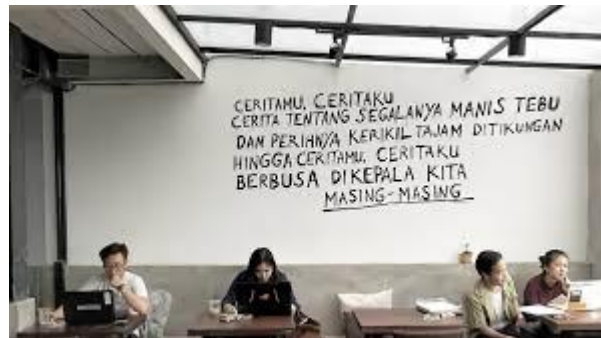 CERITAMU, CERITAKU
CERITA TENTANG SEGALANYA MANIS TEBU
DAN PERIHNYA KERIKIL TAJAM DITIKUNGAN
HINGGA CERITAMU, CERITAKU
BERBUSA DIKEPALA KITA
MASING-MASING